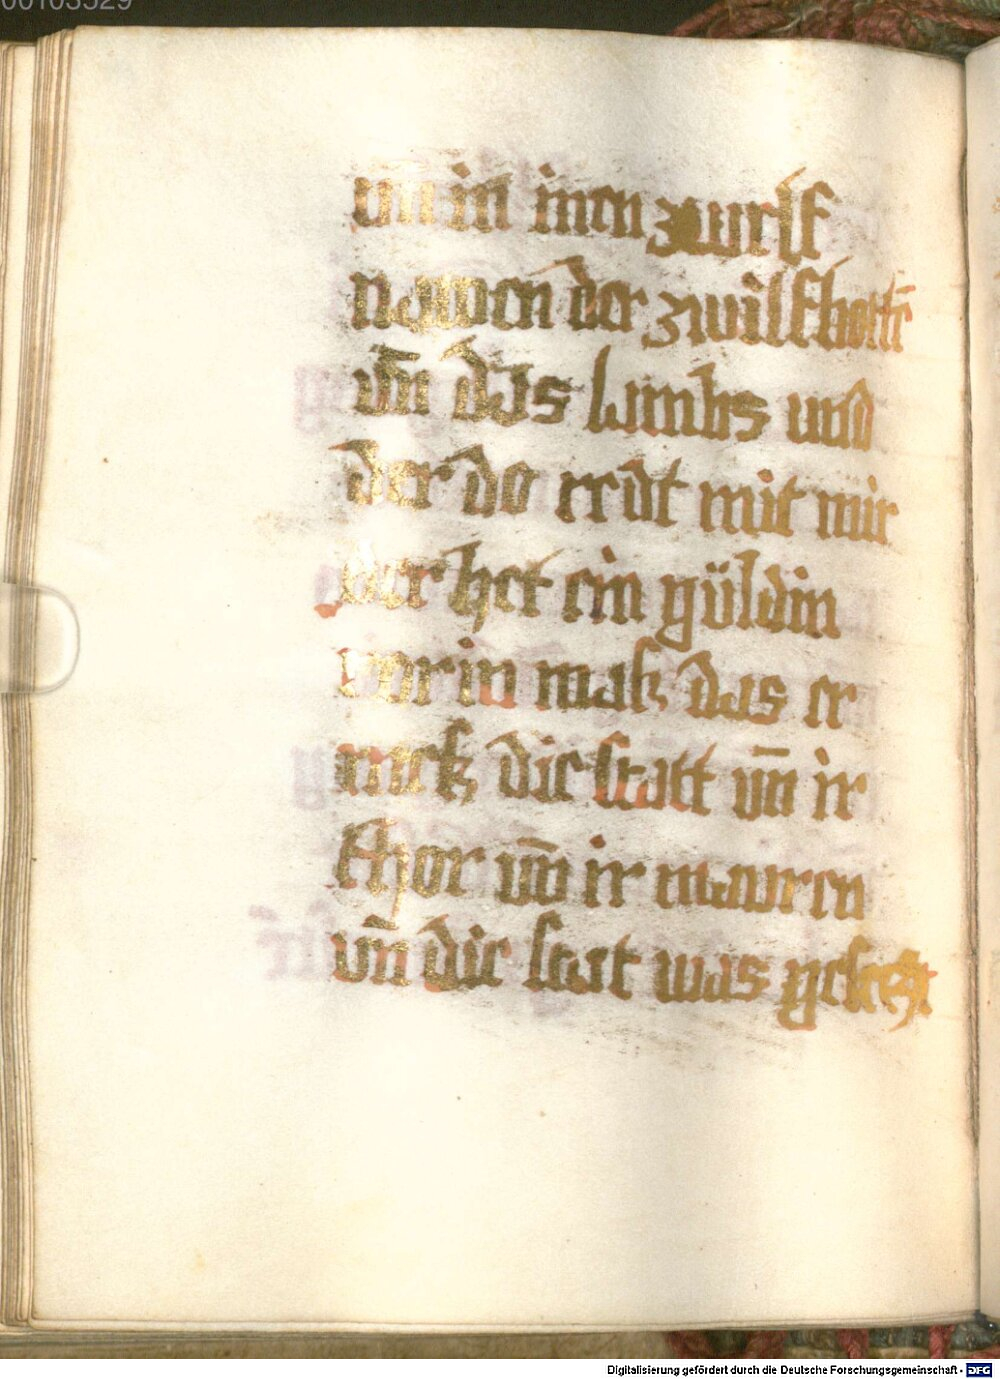 00103529
vn in inen zwelf
namen der zwilfbottē
vn̄ das lambs und
der do redt mit mir
der het ein güldin
rorin maß das er
meß die statt vn̄ ir
thor vn̄ ir mauren
vn̄ die stat was geseczt
Digitalisierung gefördert durch die Deutsche Forschungsgemeinschaft - DFG